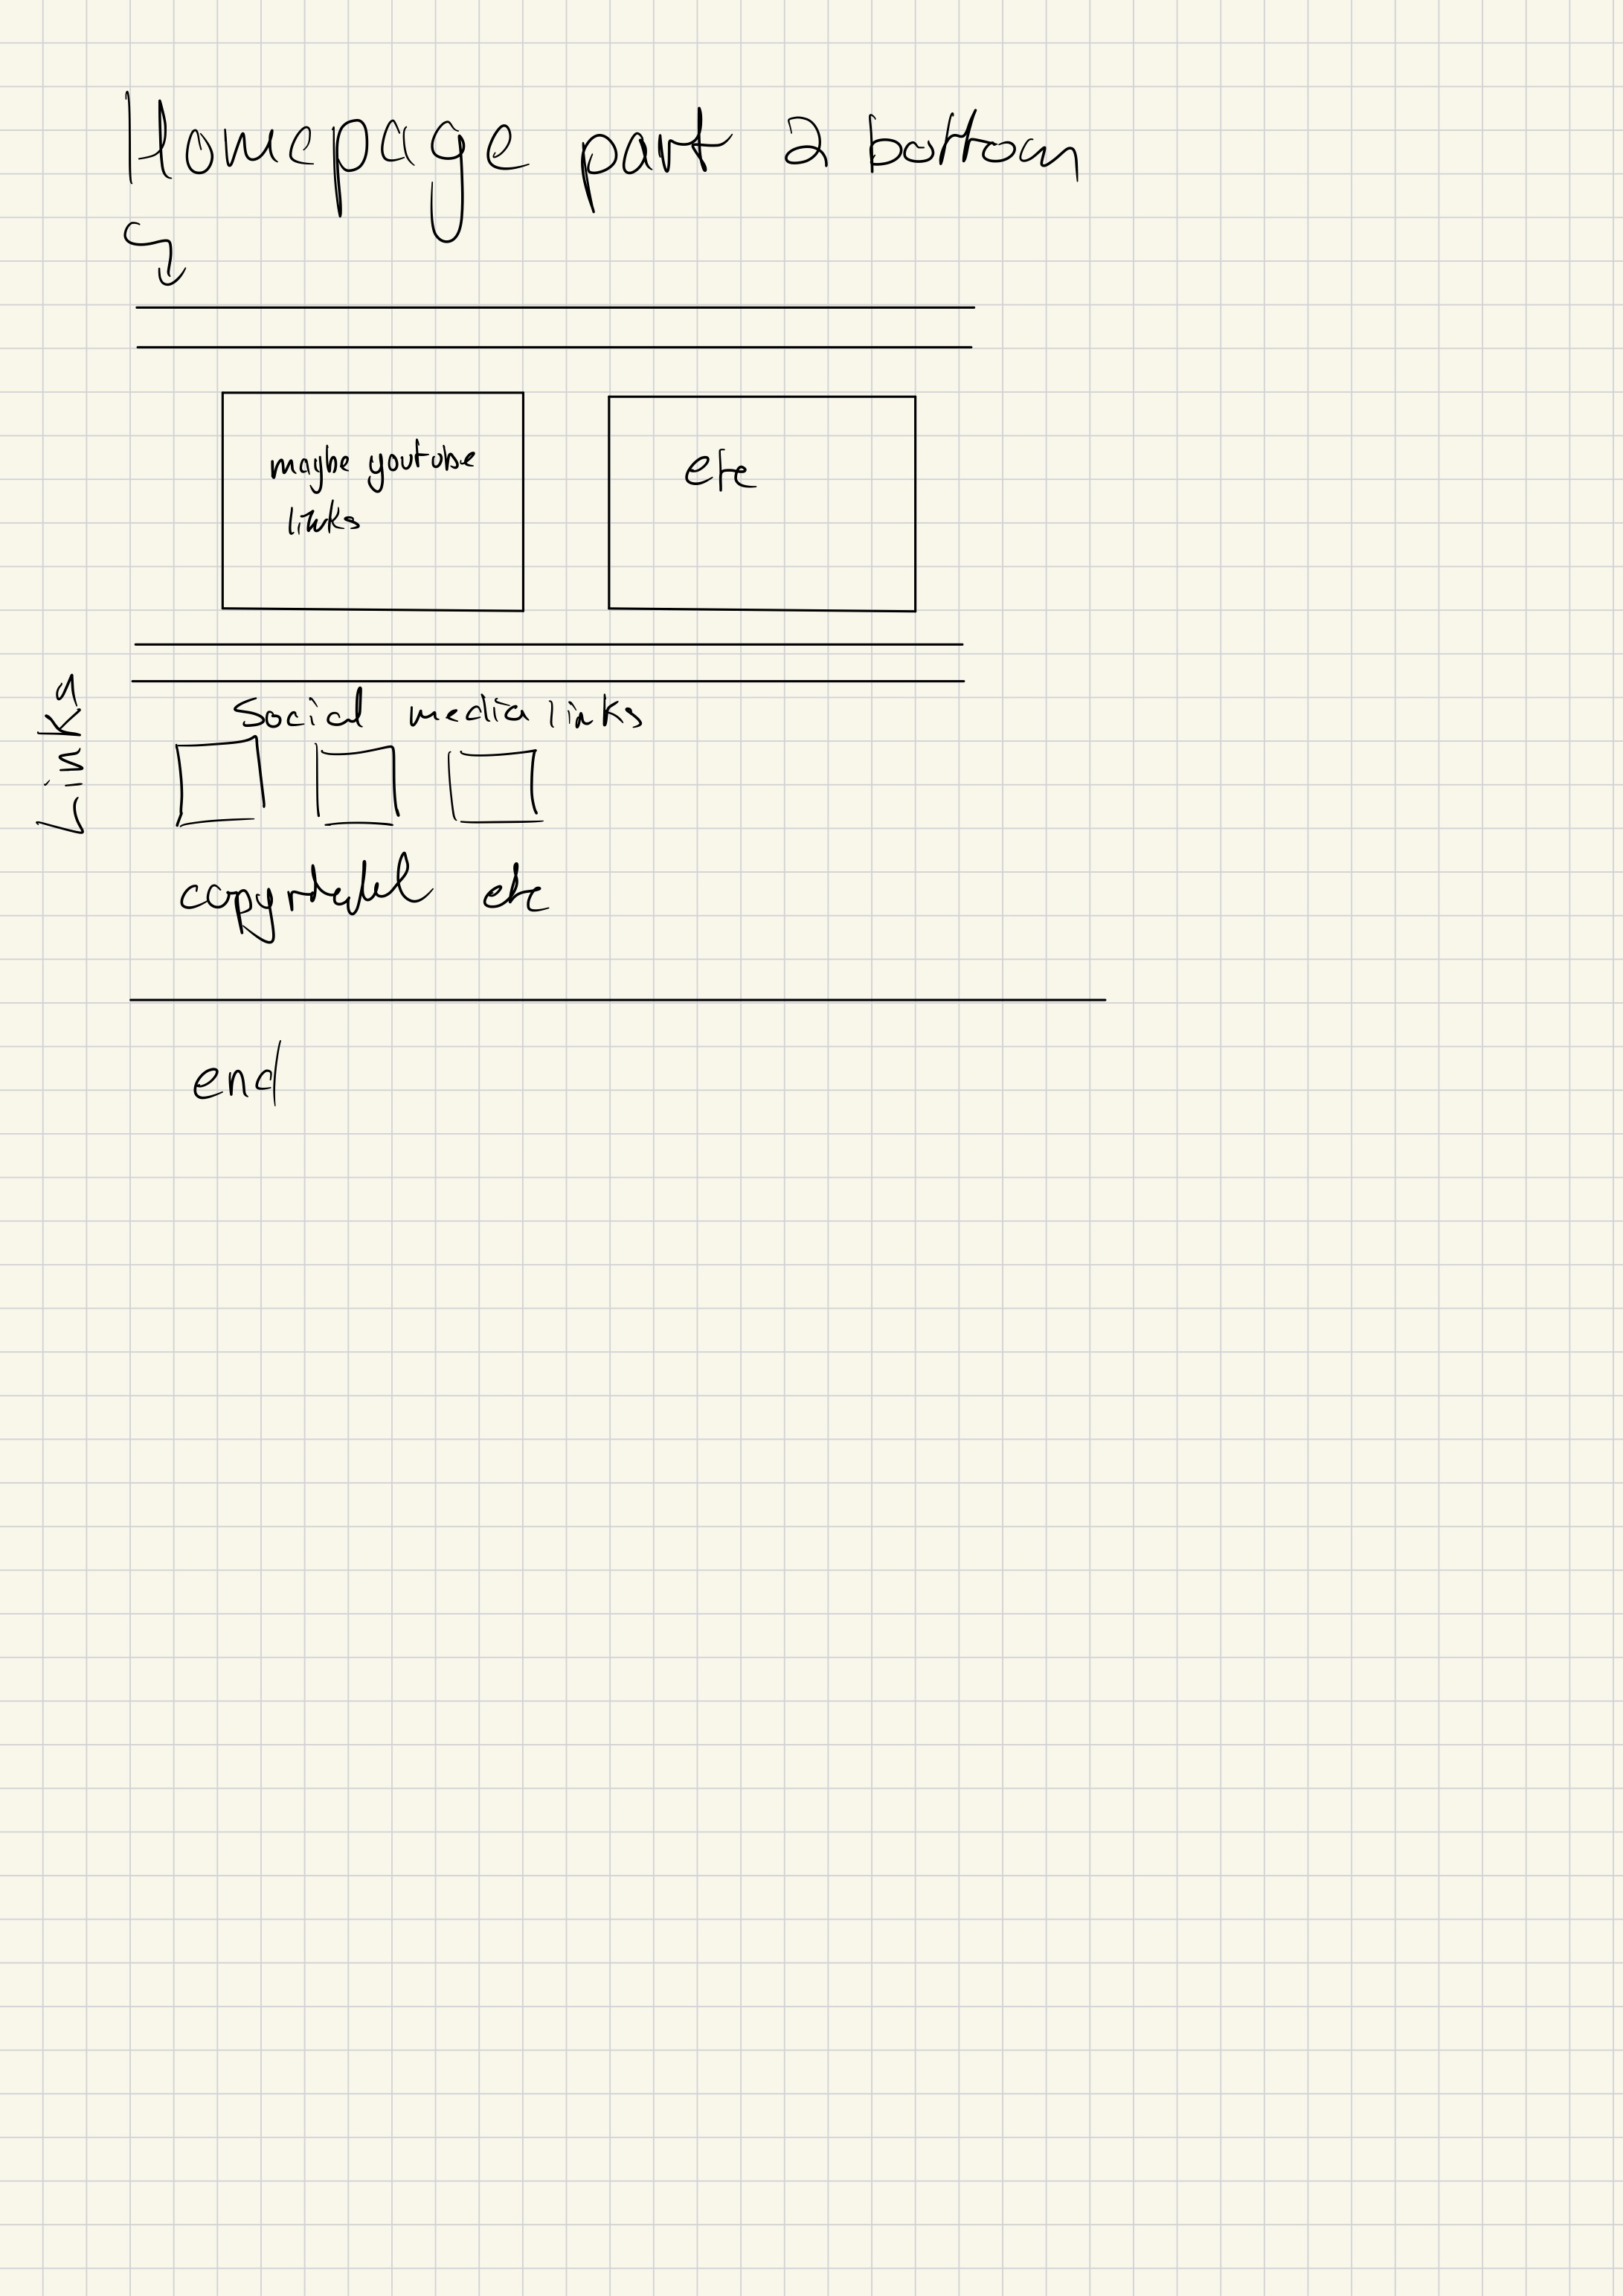 Homepage part 2 bottom
maybe youtube
links
etc
Links
Social media links
etc
end